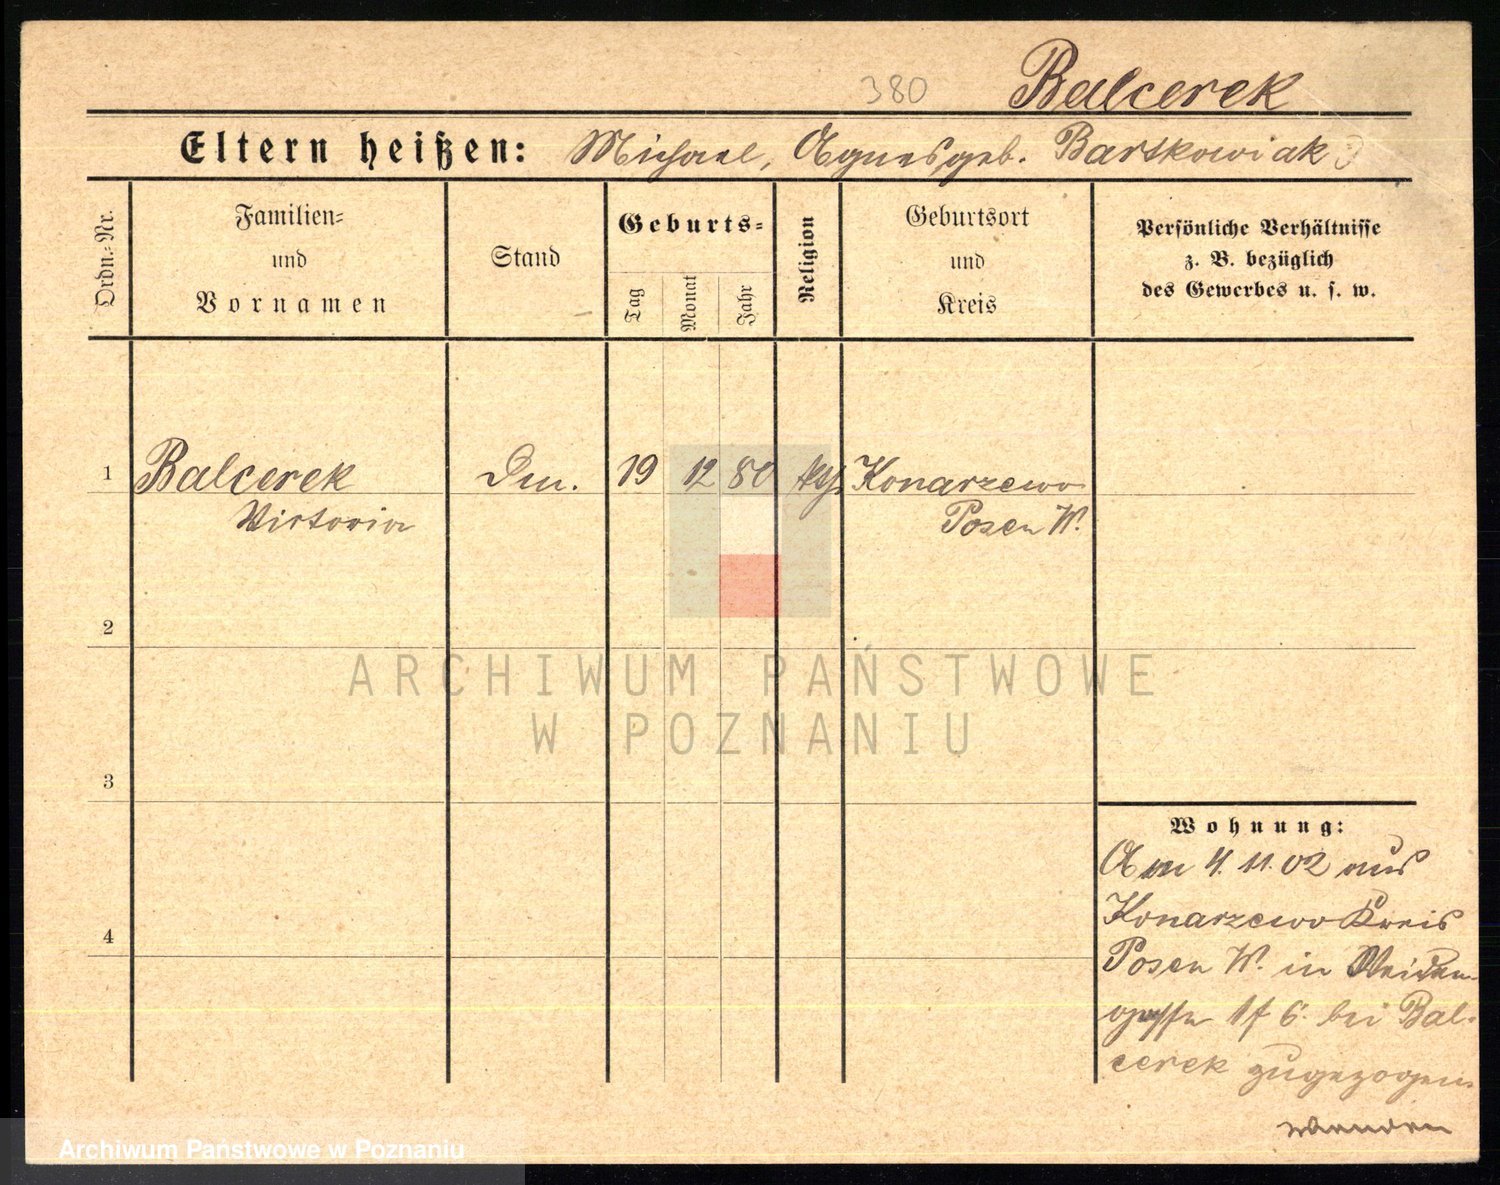 380 Balcerek
Eltern heißen: Michael, Agnes geb. Bartkowiak
Ordn.-Nr.
Familien-
und
Vornamen
Stand
Geburts-
Tag
Monat
Jahr
Religion
Geburtsort
und
Kreis
Persönliche Verhältnisse
z. B. bezüglich
des Gewerbes u. s. w.
1 Balcerek 19 12 80 kth. Konarzewo
Victoria Posen W.
2
ARCHIWUM PAŃSTWOWE
W POZNANIU
3
4
Wohnung:
Am 4.11.02 aus
Konarzewo Kreis
Posen W. in Weiden-
gasse 1f 6. bei Bal-
cerek zugezogen.
wenden
Archiwum Państwowe w Poznaniu